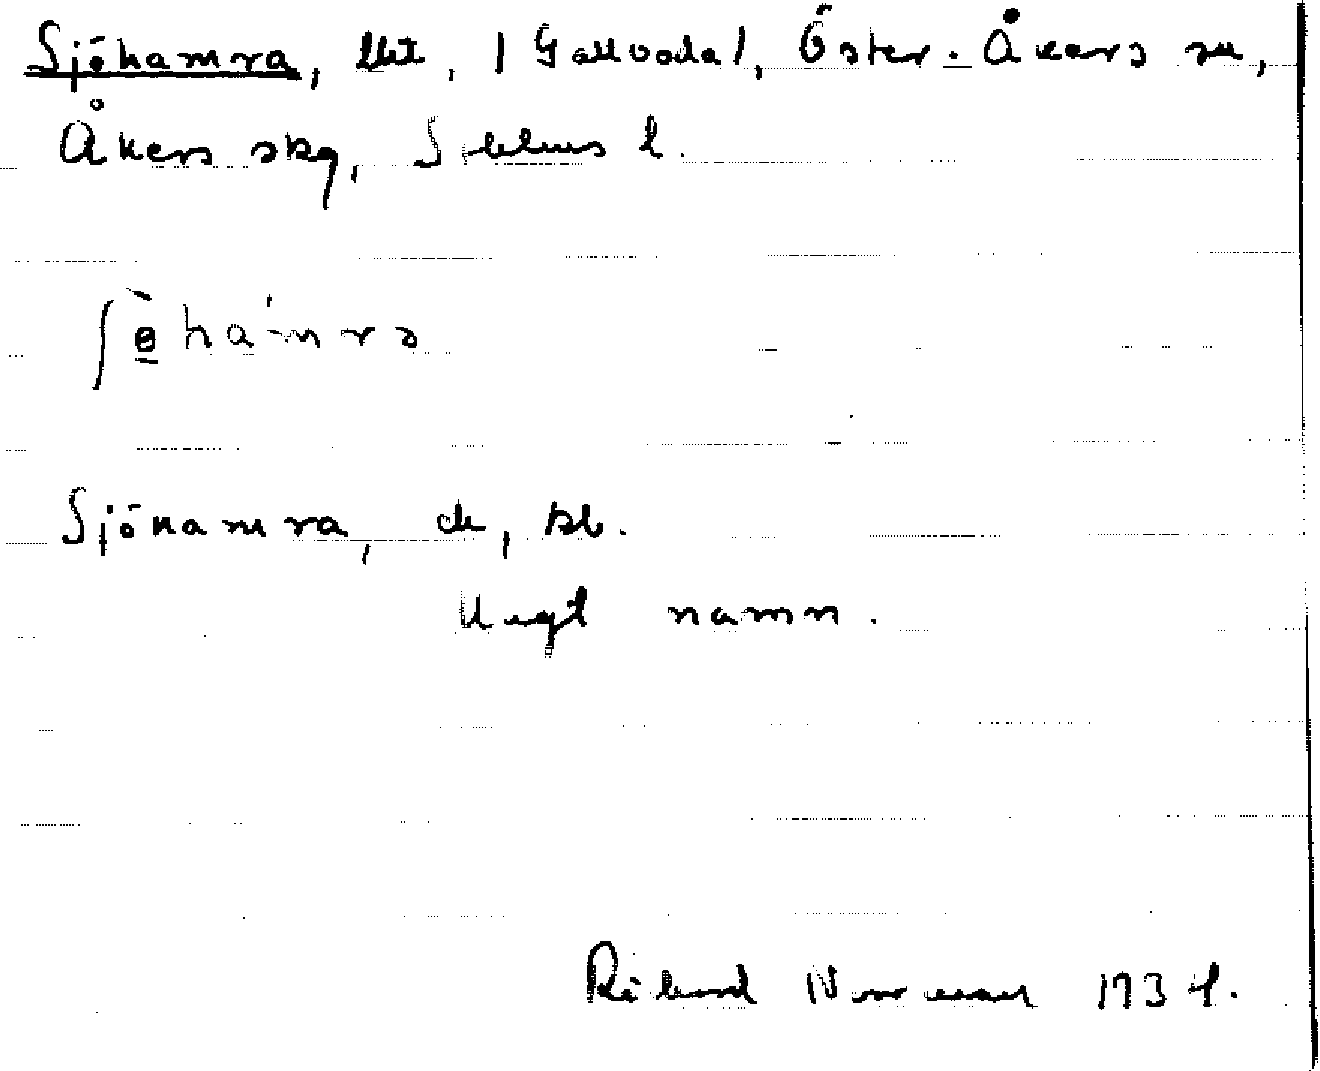 Sjöhamra, lht, /Gallboda/, Öster-Åkers sn,
Åkers skg, Sthlms l.
Sjöhamra, ek, kb.
Ungt namn.
Rikard Norrman 193